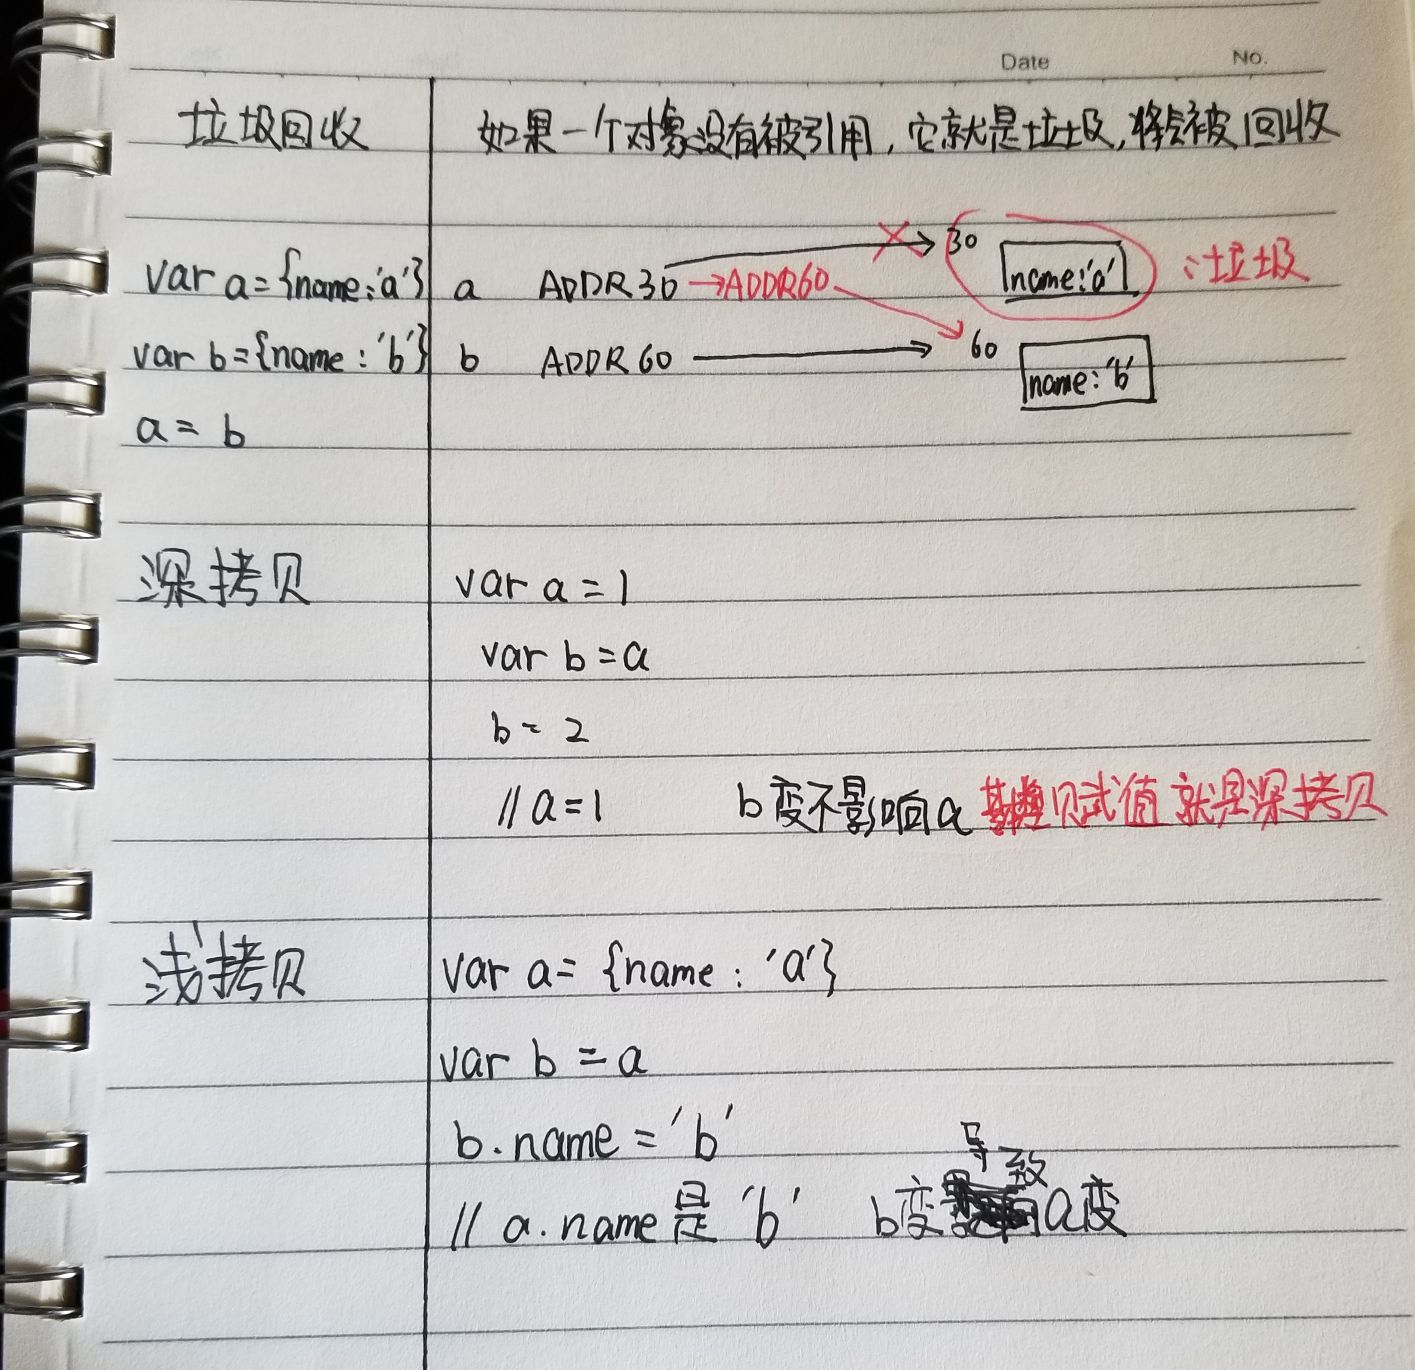 Date No.
垃圾回收 如果一个对象没有被引用,它就是垃圾,将会被回收
var a={name:'a'} a ADDR30 →ADDR60 30 name:'a' :垃圾
var b={name:'b'} b ADDR60 60 name:'b'
a=b
深拷贝 var a=1
var b=a
b=2
//a=1 b变不影响a 赋值 就是深拷贝
浅拷贝 var a={name:'a'}
var b=a
b.name='b'
导致
//a.name是'b' b变 a变